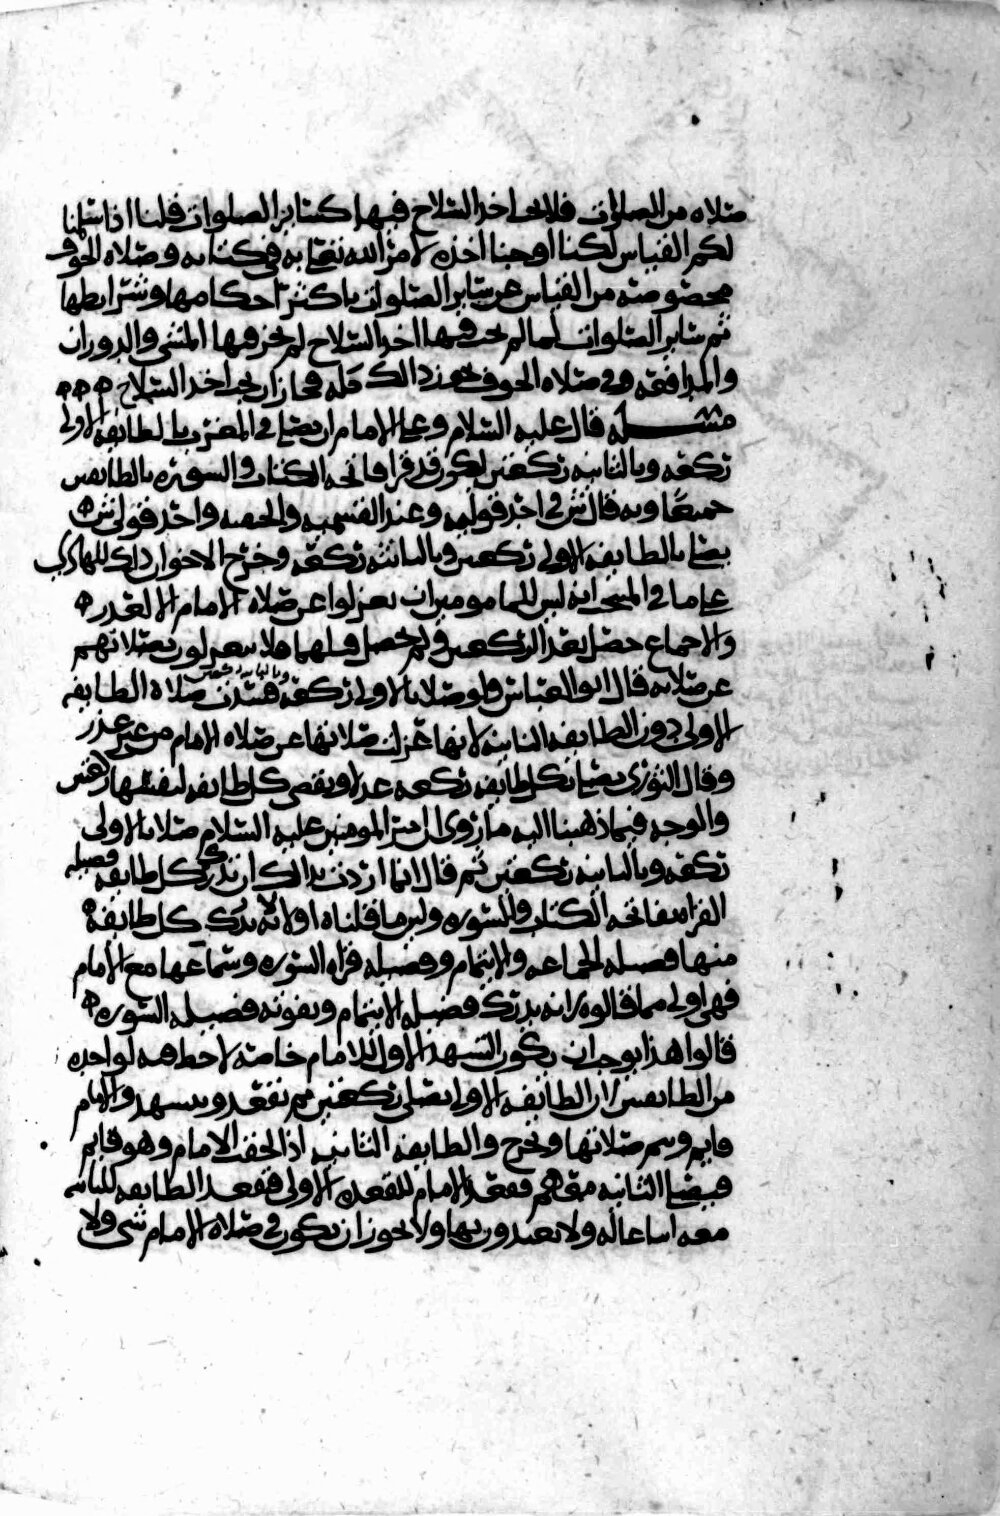 صلاه من الصلوات فلا يجب اخذ السلاح فيها كسائر الصلوات قلنا اذا سلمنا
لكم القياس لكنا اوجبنا اخذه لامر الله تعالى به في كتابه وصلاه الخوف
مخصوصه من القياس عن سائر الصلوات باكثر احكامها وشرائطها
ثم سائر الصلوات لما لم يجب فيها اخذ السلاح لم يجز فيها المشي والدوران
والمدافعه وفي صلاه الخوف يجوز ذالك كله فجاز ان يجب اخذ السلاح ۵ ۵ ۵
مسئله قال عليه السلام وعلى الامام ان يصلي في المغرب بالطايفه الاولى
ركعه وبالثانيه ركعتين ليكون قد قرا فاتحه الكتاب والسوره بالطايفتين
جميعا وبه قال ش في احد قوليه وعند القسميه والحنفيه واحد قولي ش ۵
يصلي بالطايفه الاولى ركعتين وبالثانيه ركعه وخرج الاخوان ذلك للهادي
على ما في المنتخب انه ليس للمامومين ان يعزلوا عن صلاه الامام الا لعذر ۵
والاجماع حصل بعد الركعتين ولم يحصل قبلهما فلا يعزلون صلاتهم
عن صلاته قال ابو العباس ولو صلى بالاولى ركعه وبالثانيه ركعتين فسدت صلاه الطايفه
الاولى دون الطايفه الثانيه لانها عزلت صلاتها عن صلاه الامام من غير عذر
وقال الثوري يصلي بكل طايفه ركعه عدلا ويقضي كل طايفه لنفسها ركعتين
والوجه فيما ذهبنا اليه ما روي ان امير المومنين عليه السلام صلى بالاولى
ركعه وبالثانيه ركعتين ثم قال انما اردت بذالك ان تدرك كل طايفه فضيله
القراه بفاتحه الكتاب والسوره وليس ما قلناه اولا لانه يدرك كل طايفه
منها فضيله الجماعه والائتمام وفضيله قراه السوره وسماعها مع الامام
فهي اولى مما قالوه لانه يدرك فضيله الائتمام ويفوته فضيله السوره ۵
قالوا هذا يوجب ان يكون التشهد الاول للامام خاصه لا حظ فيه لواحده
من الطايفتين لان الطايفه الاولى تصلي ركعتين ثم تقعد وتتشهد والامام
قايم وتتم صلاتها وتخرج والطايفه الثانيه اذا لحقت الامام وهو قايم
فيصلي الثانيه معهم فقعد الامام للقعده الاولى فقعد الطايفه الثانيه
معه اتباعا له ولا يعتدون بها ولا يجوز ان يكون في صلاه الامام شي ولا